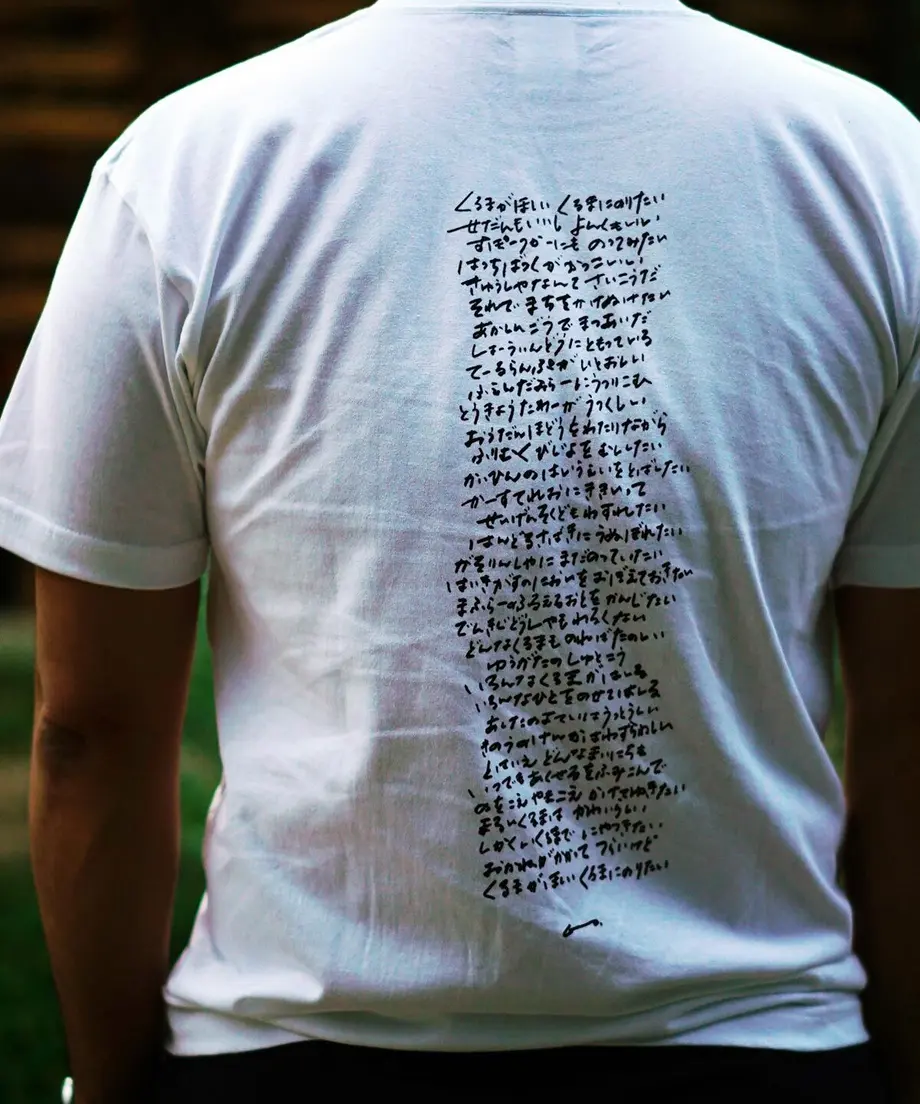 くるまがほしい くるまにのりたい
せだんもいいし よんくもいい
すぽーつかーにも のってみたい
はっちばっくがかっこいい
きゅうしゃなんて さいこうだ
それで まちをかけぬけたい
あかしんごうで まつあいだ
しょーういんどうに ともっている
てーるらんぷが いとおしい
ふぇんだみらーに うつりこむ
とうきょうたわーが うつくしい
おうだんほどうを わたりながら
ふりむく びじょを むししたい
かいひんのはいうぇいをとばしたい
かーすてれおに ききいって
せいげんそくどもわすれたい
はんどるさばきに うぬぼれたい
がそりんしゃに まだのっていたい
はいきがすのにおいを おぼえておきたい
まふらーのふるえるおとを かんじたい
でんきじどうしゃも わるくない
どんなくるまも のればたのしい
ゆうがたの しゅとこう
いろんなくるまが はしる
いろんなひとをのせて はしる
あしたのよてい うっとうしい
きのうのけんか わずらわしい
とはいえ どんなまいにちも
いつでもあくせるをふみこんで
のをこえ やまこえ かけさぬきたい
まるいくるまは かわいらしい
しかくいくるまで にやつきたい
おかねがかかって つらいけど
くるまがほしい くるまにのりたい